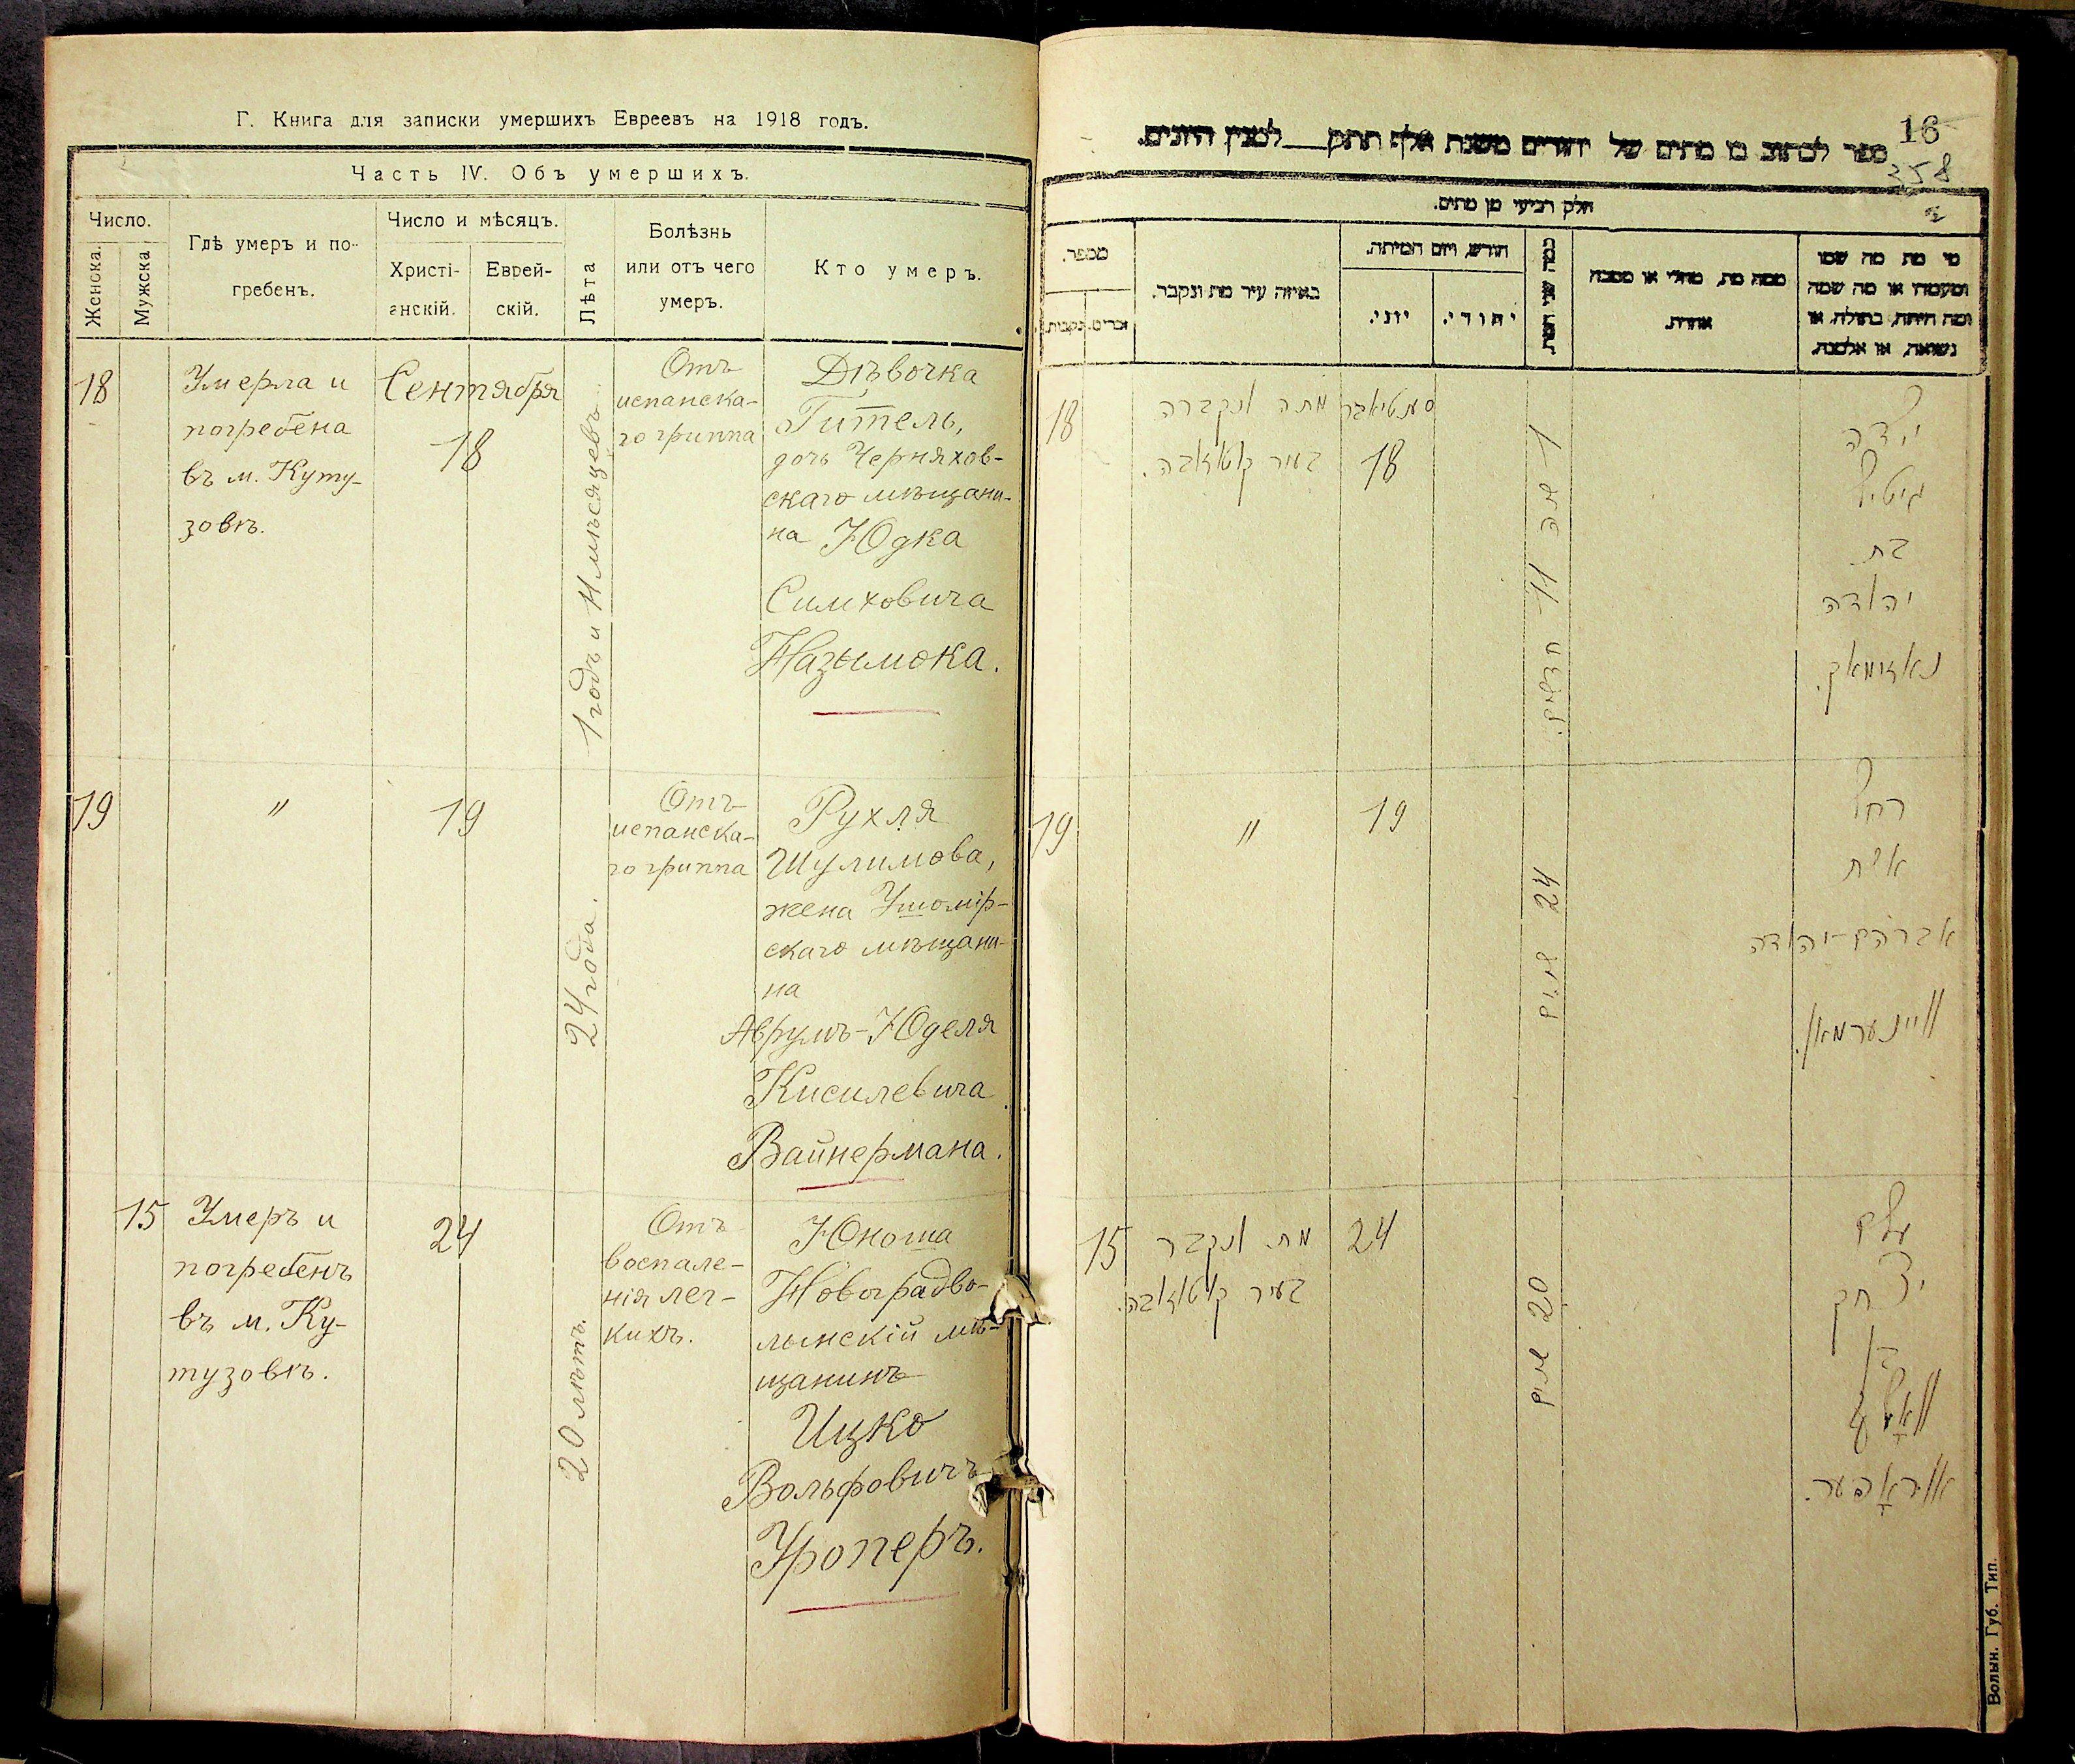 Г. Книга для записки умершихъ Евреевъ на 1918 годъ.
Часть IV. Объ умершихъ.
Число.
Женска.
Мужска
Гдѣ умеръ и по-
гребенъ.
Число и мѣсяцъ.
Христі-
анскій.
Еврей-
скій.
Лѣта
Болѣзнь
или отъ чего
умеръ.
Кто умеръ.
18
Умерла и
погребена
въ м. Куту-
зовкѣ.
Сентября
18
1 годъ и 11 мѣсяцевъ
Отъ
испанска-
го гриппа
Дѣвочка
Гитель,
дочь Черняхов-
скаго мѣщани-
на Юдка
Симховича
Назымока.
19
"
19
24 года.
Отъ
испанска-
го гриппа
Рухля
Шулимова,
жена Ушомір-
скаго мѣщани-
на
Аврумъ-Юделя
Кисилевича
Вайнермана.
15
Умеръ и
погребенъ
въ м. Ку-
тузовкѣ.
24
20 лѣтъ.
Отъ
воспале-
нія лег-
кихъ.
Юноша
Новоградво-
лынскій мѣ-
щанинъ
Ицко
Вольфовичъ
Уроперъ.
16
ספר לכתוב בו מתים של יהודים משנת אלף תתק למנין היונים.
358
חלק רביעי מן מתים.
מספר.
זכרים.
נקבות.
באיזה עיר מת ונקבר.
חודש, ויום המיתה.
יוני.
יהודי.
כמה שני המת.
ממה מת, מחלי או מסבה
אחרת.
מי מת מה שמו
ומעמדו או מה שמה
ומה היתה, בתולה, או
נשואה, או אלמנה.
18
מתה ונקברה
בעיר קוטוזובה.
סענטיאבר
18
1 שנה 11 חדשים.
ילדה
גיטיל
בת
יהודה
נאזימאק.
19
"
19
24 שנים
רחל
אשת
אברהם-יהודה
וויינערמאן.
15
מת ונקבר
בעיר קוטוזובה.
24
20 שנים
עלם
יצחק
בן
וואָלף
אוראָפער.
Волын. Губ. Тип.